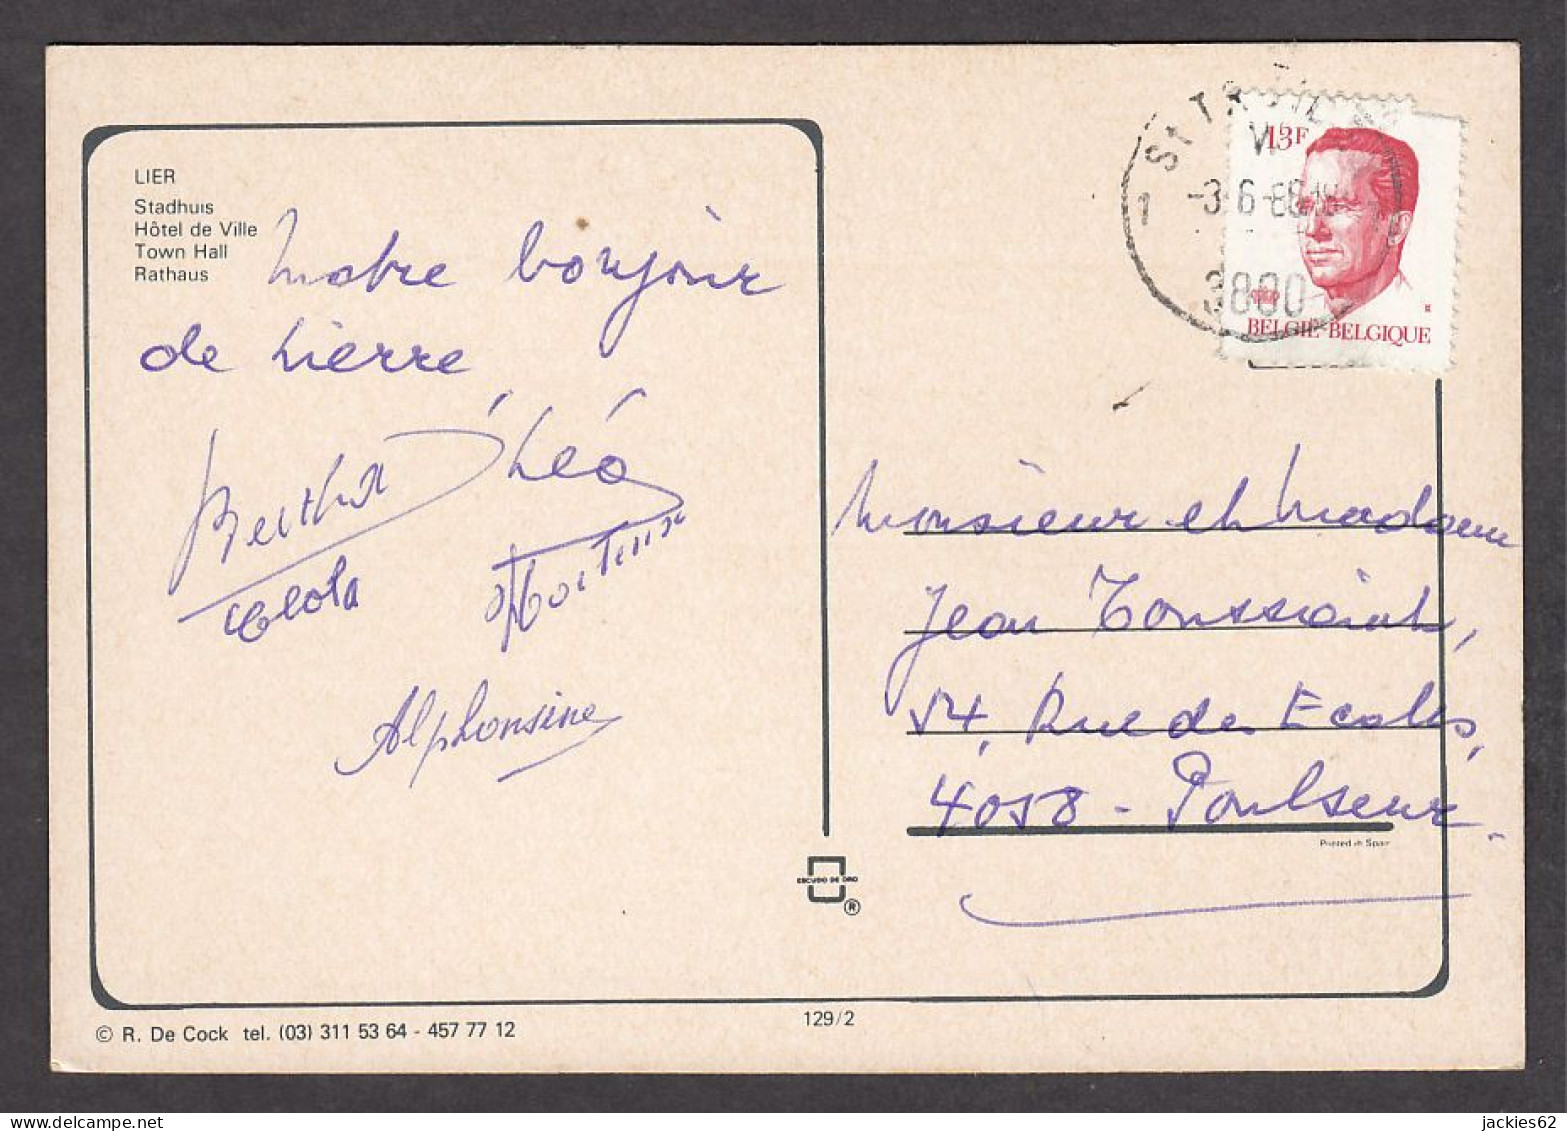 LIER
Stadhuis
Hôtel de Ville
Town Hall
Rathaus
Notre bonjour
de Lierre
Bertha Théo
Alphonsine
© R. De Cock tel. (03) 311 53 64 - 457 77 12
129/2
ESCUDO DE ORO
®
1
-3-6-88
3800
13F
BELGIE-BELGIQUE
Monsieur et Madame
Jean Toussaint,
54, Rue des Ecoles,
4058 - Poulseur.
Printed in Spain
jackies62